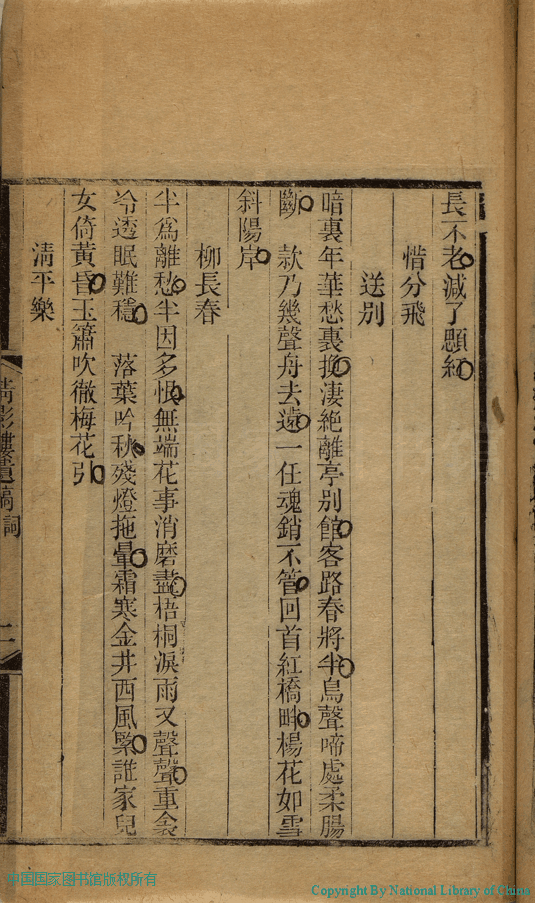 長不老減了顋紅
惜分飛
送别
暗裏年華愁裏換淒絶離亭別館客路春將半鳥聲啼處柔腸
斷　款乃幾聲舟去遠一任魂銷不管回首紅橋畔楊花如雪
斜陽岸
柳長春
半爲離愁半因多恨無端花事消磨盡梧桐淚雨又聲聲重衾
冷透眠難穩　落葉吟秋殘燈拖暈霜寒金井西風緊誰家兒
女倚黃昏玉簫吹徹梅花引
淸平樂
淸影樓遺稿 詞
二
中国国家图书馆版权所有
Copyright By National Library of China